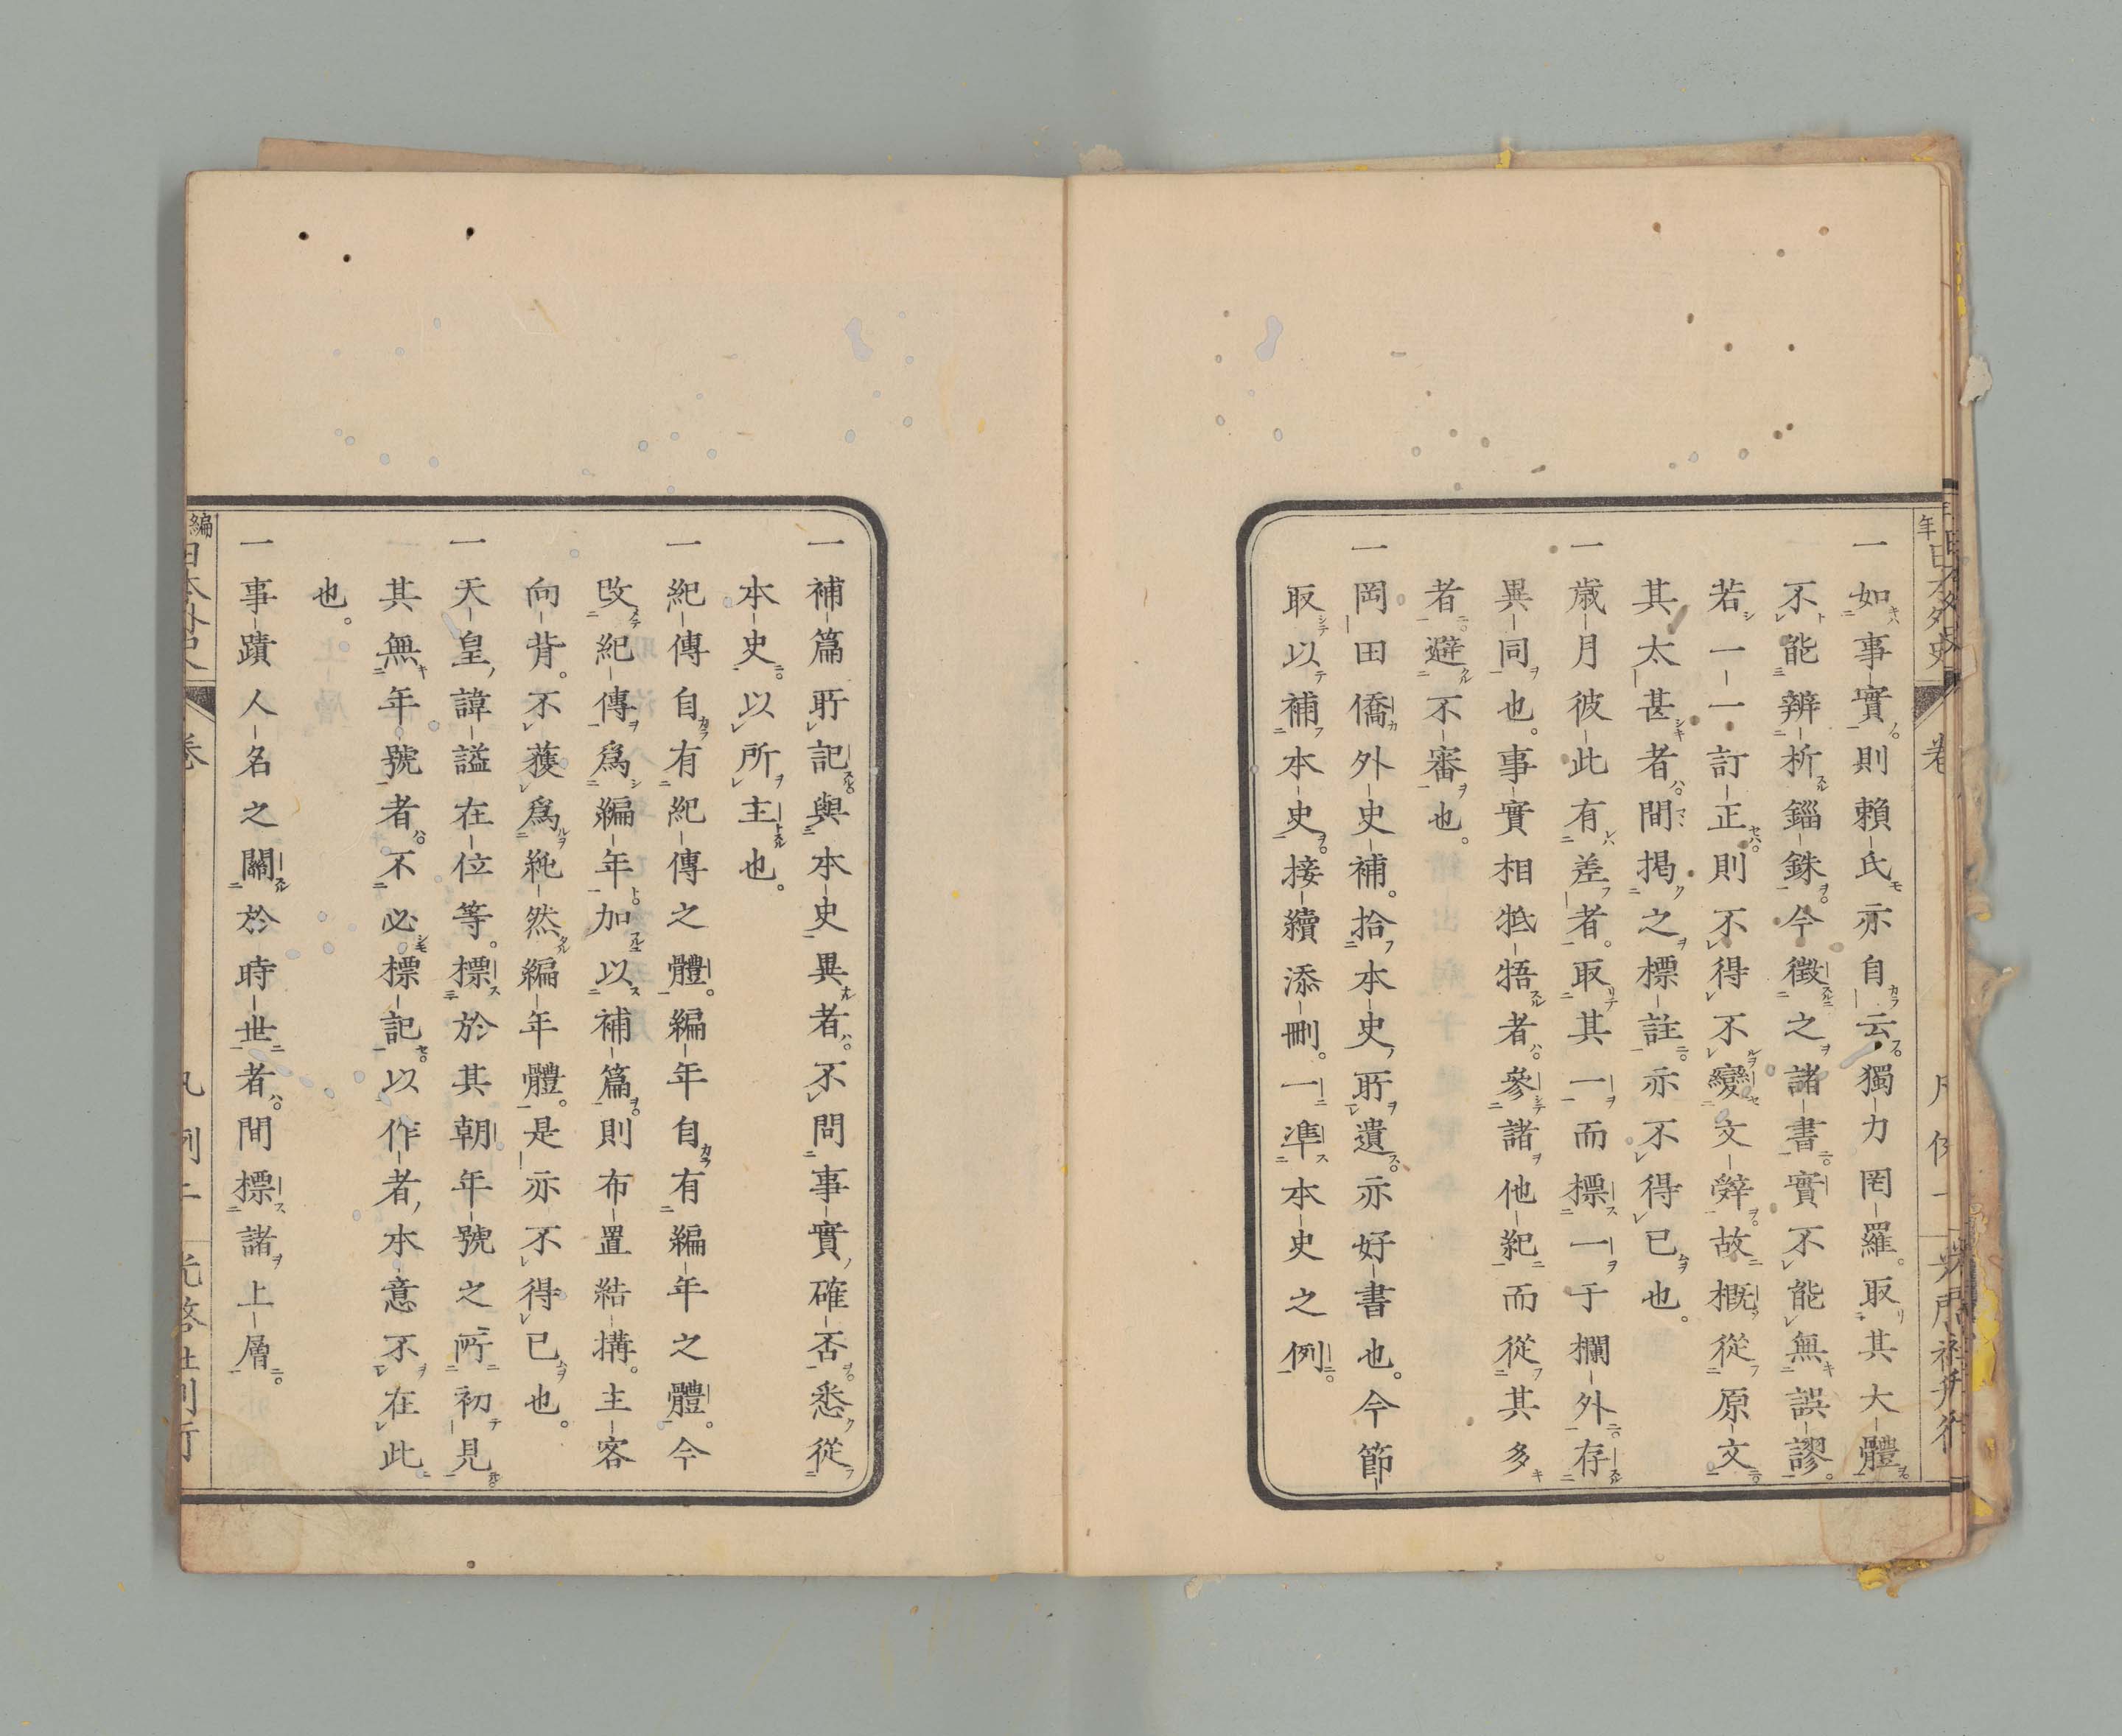 一如事實則賴氏亦自云獨力罔羅。取其大體
不能辨析錙銖今徵之諸書實不能無誤謬。
若一一訂正則不得不變文辭故概從原文
其太甚者間掲之標註亦不得已也。
一歲月彼此有差者。取其一而標一于欄外存
異同也。事實相牴牾者參諸他紀而從其多
者避不審也。
一岡田僑外史補。拾本史所遺亦好書也。今節
取以補本史接續添刪。一準本史之例
一補篇所記與本史異者不問事實確否悉從
本史以所主也。
一紀傳自有紀傳之體。編年自有編年之體。今
改紀傳爲編年加以補篇則布置結搆。主客
向背。不獲爲純然編年體。是亦不得已也。
一天皇諱謚在位等。標於其朝年號之所初見
其無年號者不必標記以作者本意不在此
也。
一事蹟人名之關於時世者間標諸上層